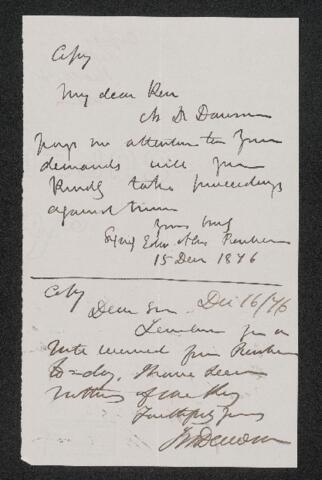 Copy
My dear
As Dr Dawson
pays no attention to your
demands will you
kindly take proceedings
against him
Yours truly
Signed Edw
15 Decr 1876
Copy
Dear Sir Dec 16/76
I enclose you a
note received from
to-day. I have seen
nothing of
Faithfully Yours